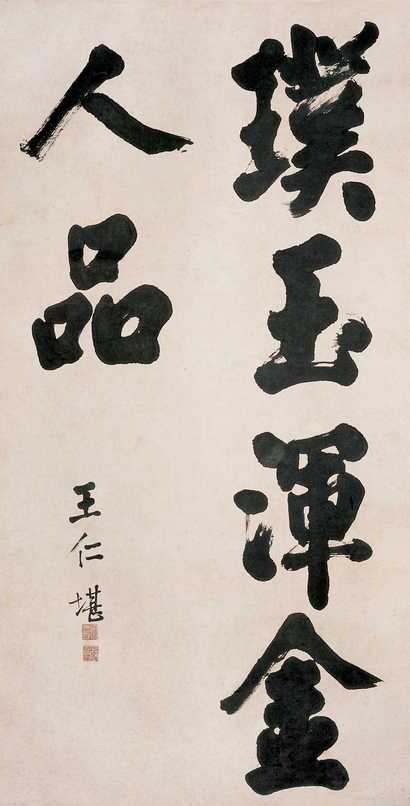 璞玉渾金
人品
王仁堪